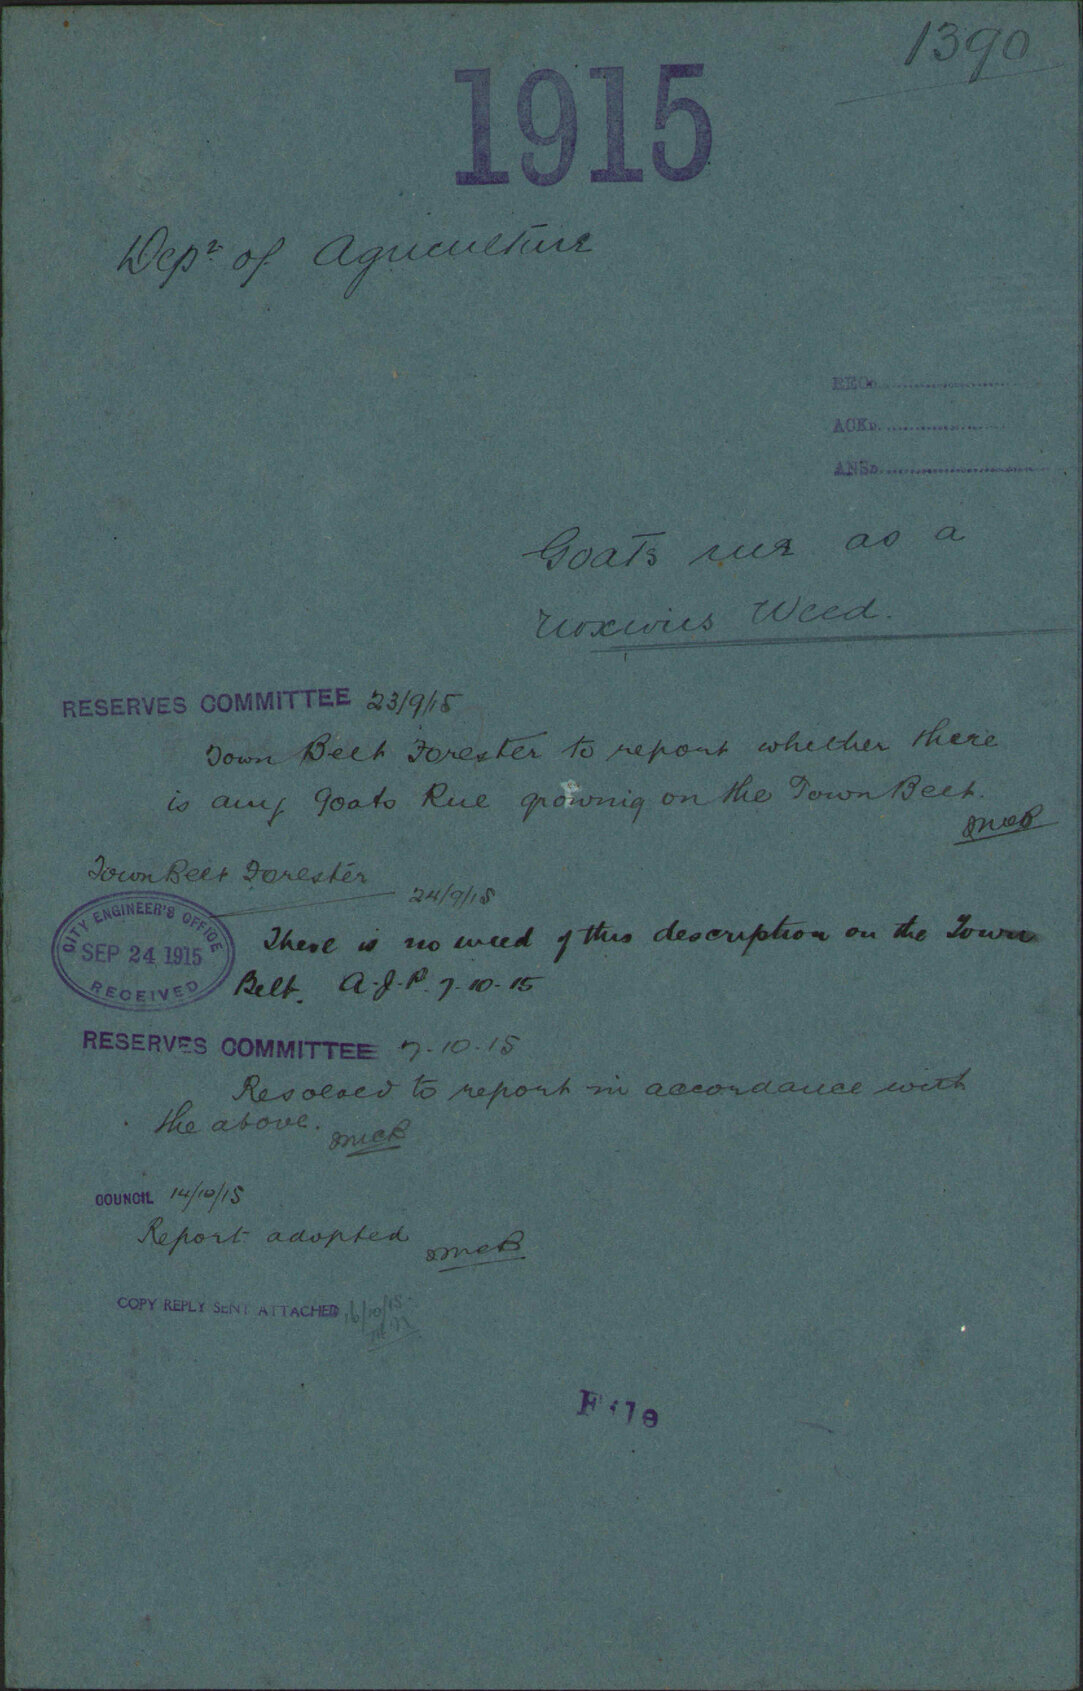 1390
1915
Dept of Agriculture
REC D.
ACK D.
ANS D.
Goats rue as a
Noxious Weed.
RESERVES COMMITTEE 23/9/15
Town Belt Forester to report whether there
is any Goats Rue growing on the Town Belt.
Town Belt Forester
24/9/15
CITY ENGINEER'S OFFICE
SEP 24 1915
RECEIVED
There is no weed of this description on the Town
Belt. A.J.P. 7.10.15
RESERVES COMMITTEE 7.10.15
Resolved to report in accordance with
the above.
COUNCIL 14/10/15
Report adopted
COPY REPLY SENT ATTACHED 16/10/15
File